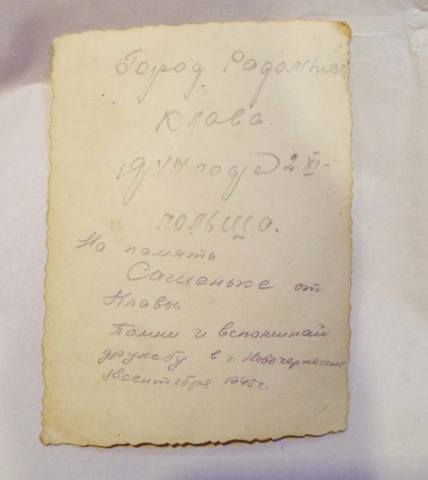 Город Радомысл
Клава
1944 года 2 XI-
польша.
На память
Сашеньке от
Клавы.
Помни и вспоминай
дружбу в г. Новочеркасске
18 сентября 1945 г.